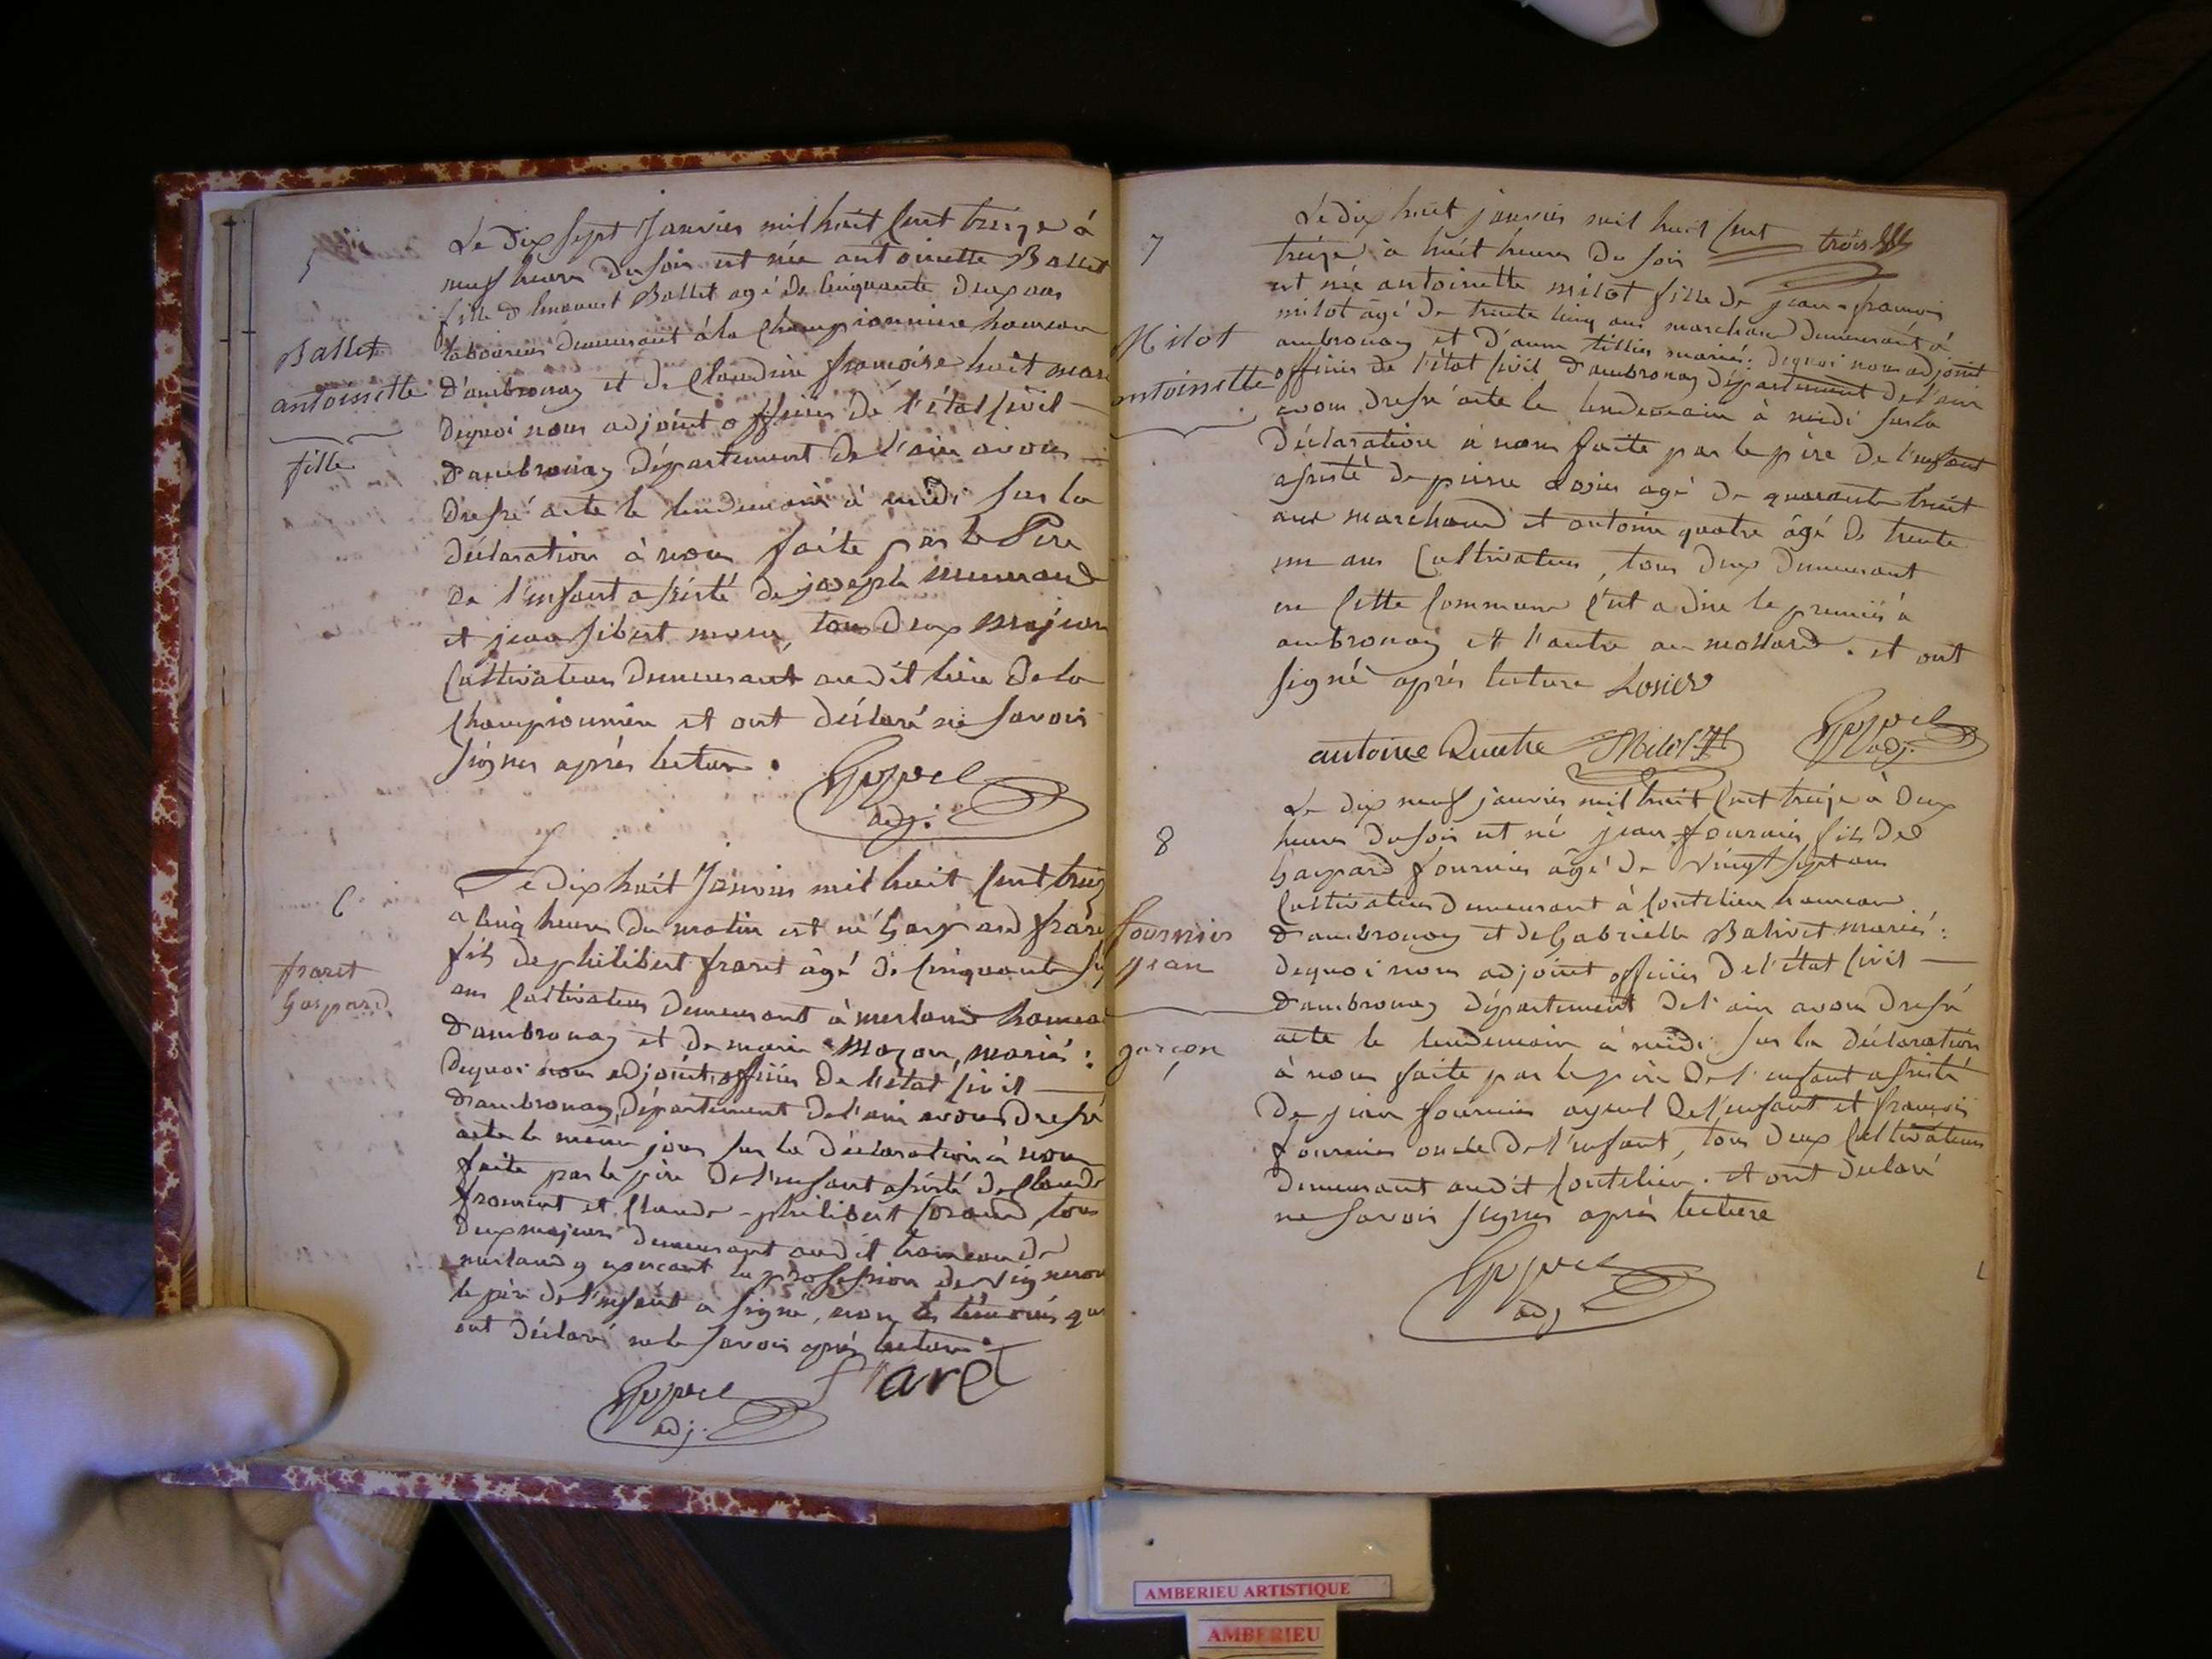 5
Ballet
antoinette
fille
Le dix sept Janvier mil huit cent treize à
neuf heures du soir est née antoinette Ballet
fille de Ballet agé de cinquante deux ans
laboureur demeurant à la Championnière hameau
d'ambronay et de Claudine françoise huit
dequoi nous adjoint officier de l'état civil
d'ambronay département de l'ain avons
dressé acte le lendemain à midi sur la
déclaration à nous faite par le Pere
de l'enfant assisté de joseph
et jean sibert tous deux majeurs
Cultivateurs demeurant audit lieu de la
Championnière et ont déclaré ne savoir
signer après lecture.
adj.
6
fraret
Gaspard
Le dix huit Janvier mil huit cent treiz
a cinq heures du matin est né Gaspard
fils de philibert fraret âgé de cinquante
ans Cultivateur demeurant à merland hameau
d'ambronay et de marie mazon, mariés :
dequoi nous adjoint officier de l'état civil
d'ambronay, département de l'ain avons dressé
acte le même jour sur la déclaration à nous
faite par le père de l'enfant assisté de Claude
froment et Claude-philibert tous
deux majeurs demeurant audit hameau de
merland y exercant la profession de Vigneron
le père de l'enfant a signé, non les témoins qui
ont déclaré ne le savoir après lecture.
fraret
adj.
7
Milot
antoinette
Le dix huit janvier mil huit cent trois
treize à huit heures du soir
est née antoinette milot fille de jean-françois
milot âgé de trente cinq ans marchand demeurant à
ambronay et d'anne tillier mariés : dequoi nous adjoint
officier de l'état civil d'ambronay département de l'ain
avons dressé acte le lendemain à midi sur la
déclaration à nous faite par le père de l'enfant
assisté de pierre Losier agé de quarante huit
ans marchand et antoine quatre âgé de trente
un ans Cultivateur, tous deux demeurant
en cette Commune c'est a dire le premier à
ambronay et l'autre au mollard. et ont
signé après lecture Losier
antoine Quatre Milot
adj.
8
fournier
jean
garçon
Le dix neuf janvier mil huit cent treize à deux
heures du soir est né jean fournier fils de
Gaspard fournier âgé de Vingt sept ans
Cultivateur demeurant à Coutelieu hameau
d'ambronay et de Gabrielle Balivet mariés :
dequoi nous adjoint officier de l'état civil
d'ambronay département de l'ain avons dressé
acte le lendemain à midi sur la déclaration
à nous faite par le père de l'enfant assisté
de jean fournier ayeul de l'enfant et françois
fournier oncle de l'enfant, tous deux Cultivateurs
demeurant audit Coutelieu. et ont déclaré
ne savoir signer après lecture
adj
AMBERIEU ARTISTIQUE
AMBERIEU